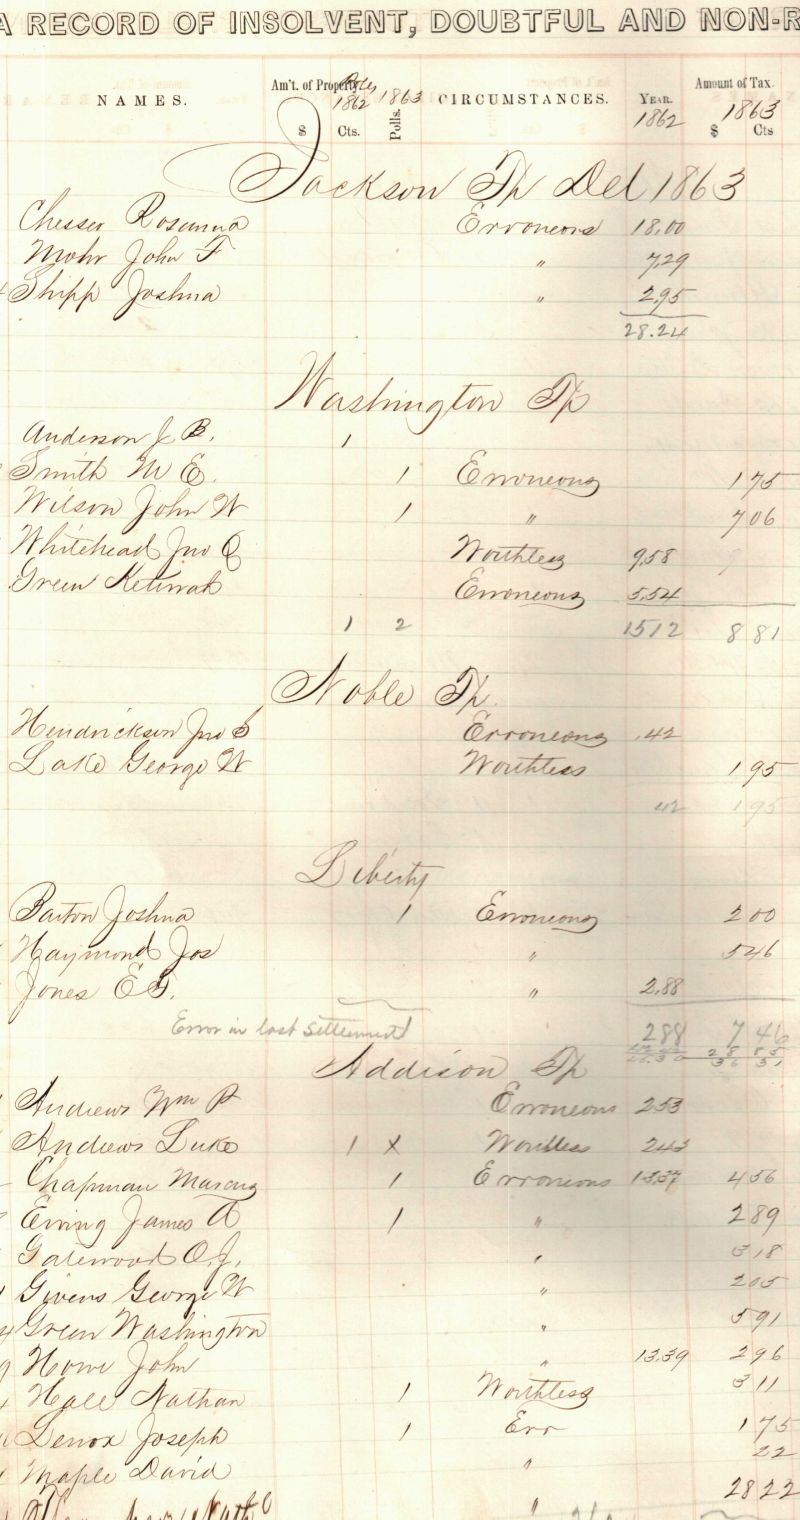 A RECORD OF INSOLVENT, DOUBTFUL AND NON-R
NAMES. Am't. of Property Polls 1862 1863 CIRCUMSTANCES. YEAR. 1862 Amount of Tax 1863
$ Cts. Polls. $ Cts
Jackson Tp Del 1863
Chesser Rosanna Erroneous 18.00
Mohr John F " 7,29
Shipp Joshua " 2.95
28.24
Washington Tp
Anderson J B. 1
Smith M E. 1 Erroneous 175
Wilson John W 1 " 706
Whitehead Jno Worthless 9.58
Green Erroneous 5.54
1 2 1512 8 81
Noble Tp.
Hendrickson Jno S Erroneous .42
Lake George W Worthless 195
42 195
Liberty
Barton Joshua 1 Erroneous 200
Haymond Jos " 546
Jones E G. " 2.88
Error in last Settlement 288 7 46
Addison Tp
Andrews Wm P Erroneous 253
Andrews Luke 1 x Worthless 243
Chapman Marcus 1 Erroneous 13.37 456
Ewing James A 1 " 289
Gatewood O.J. " 318
Givens George W " 205
Green Washington " 591
Howe John " 13.39 296
Hale Nathan 1 Worthless 311
Lenox Joseph 1 Err 175
Maple David " 22
" 2822